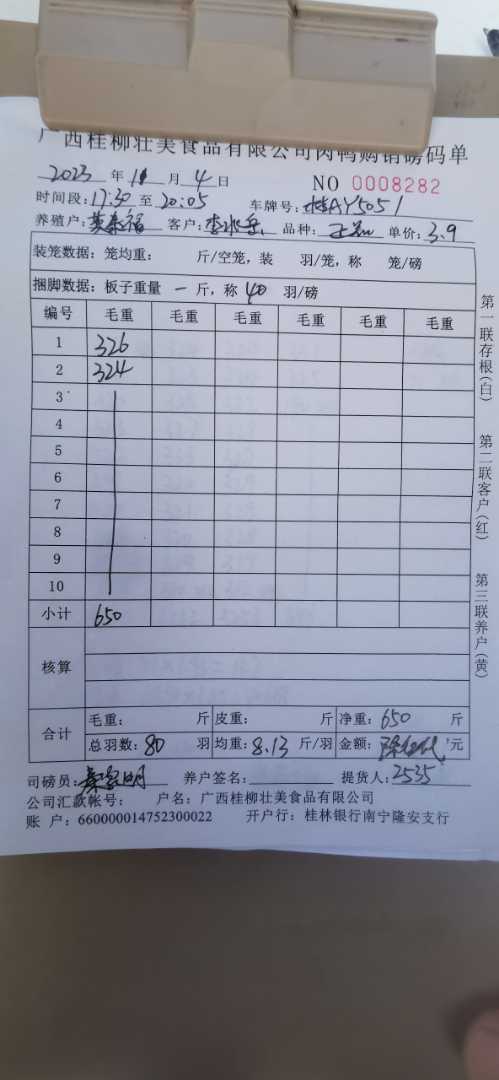 广西桂柳壮美食品有限公司肉鸭购销磅码单
2023 年 11 月 4 日 NO 0008282
时间段:17:30 至 20:05 车牌号:桂AY5051
养殖户: 客户: 品种: 单价:3.9
装笼数据:笼均重: 斤/空笼,装 羽/笼,称 笼/磅
捆脚数据:板子重量 一 斤,称 40 羽/磅
编号 毛重 毛重 毛重 毛重 毛重 毛重
1 326
2 324
3
4
5
6
7
8
9
10
小计 650
核算
合计 毛重: 斤 皮重: 斤 净重:650 斤
总羽数:80 羽 均重:8.13 斤/羽 金额: 元
司磅员: 养户签名: 提货人:2535
公司汇款帐号: 户名:广西桂柳壮美食品有限公司
账 户:660000014752300022 开户行:桂林银行南宁隆安支行
第一联存根(白)
第二联客户(红)
第三联养户(黄)